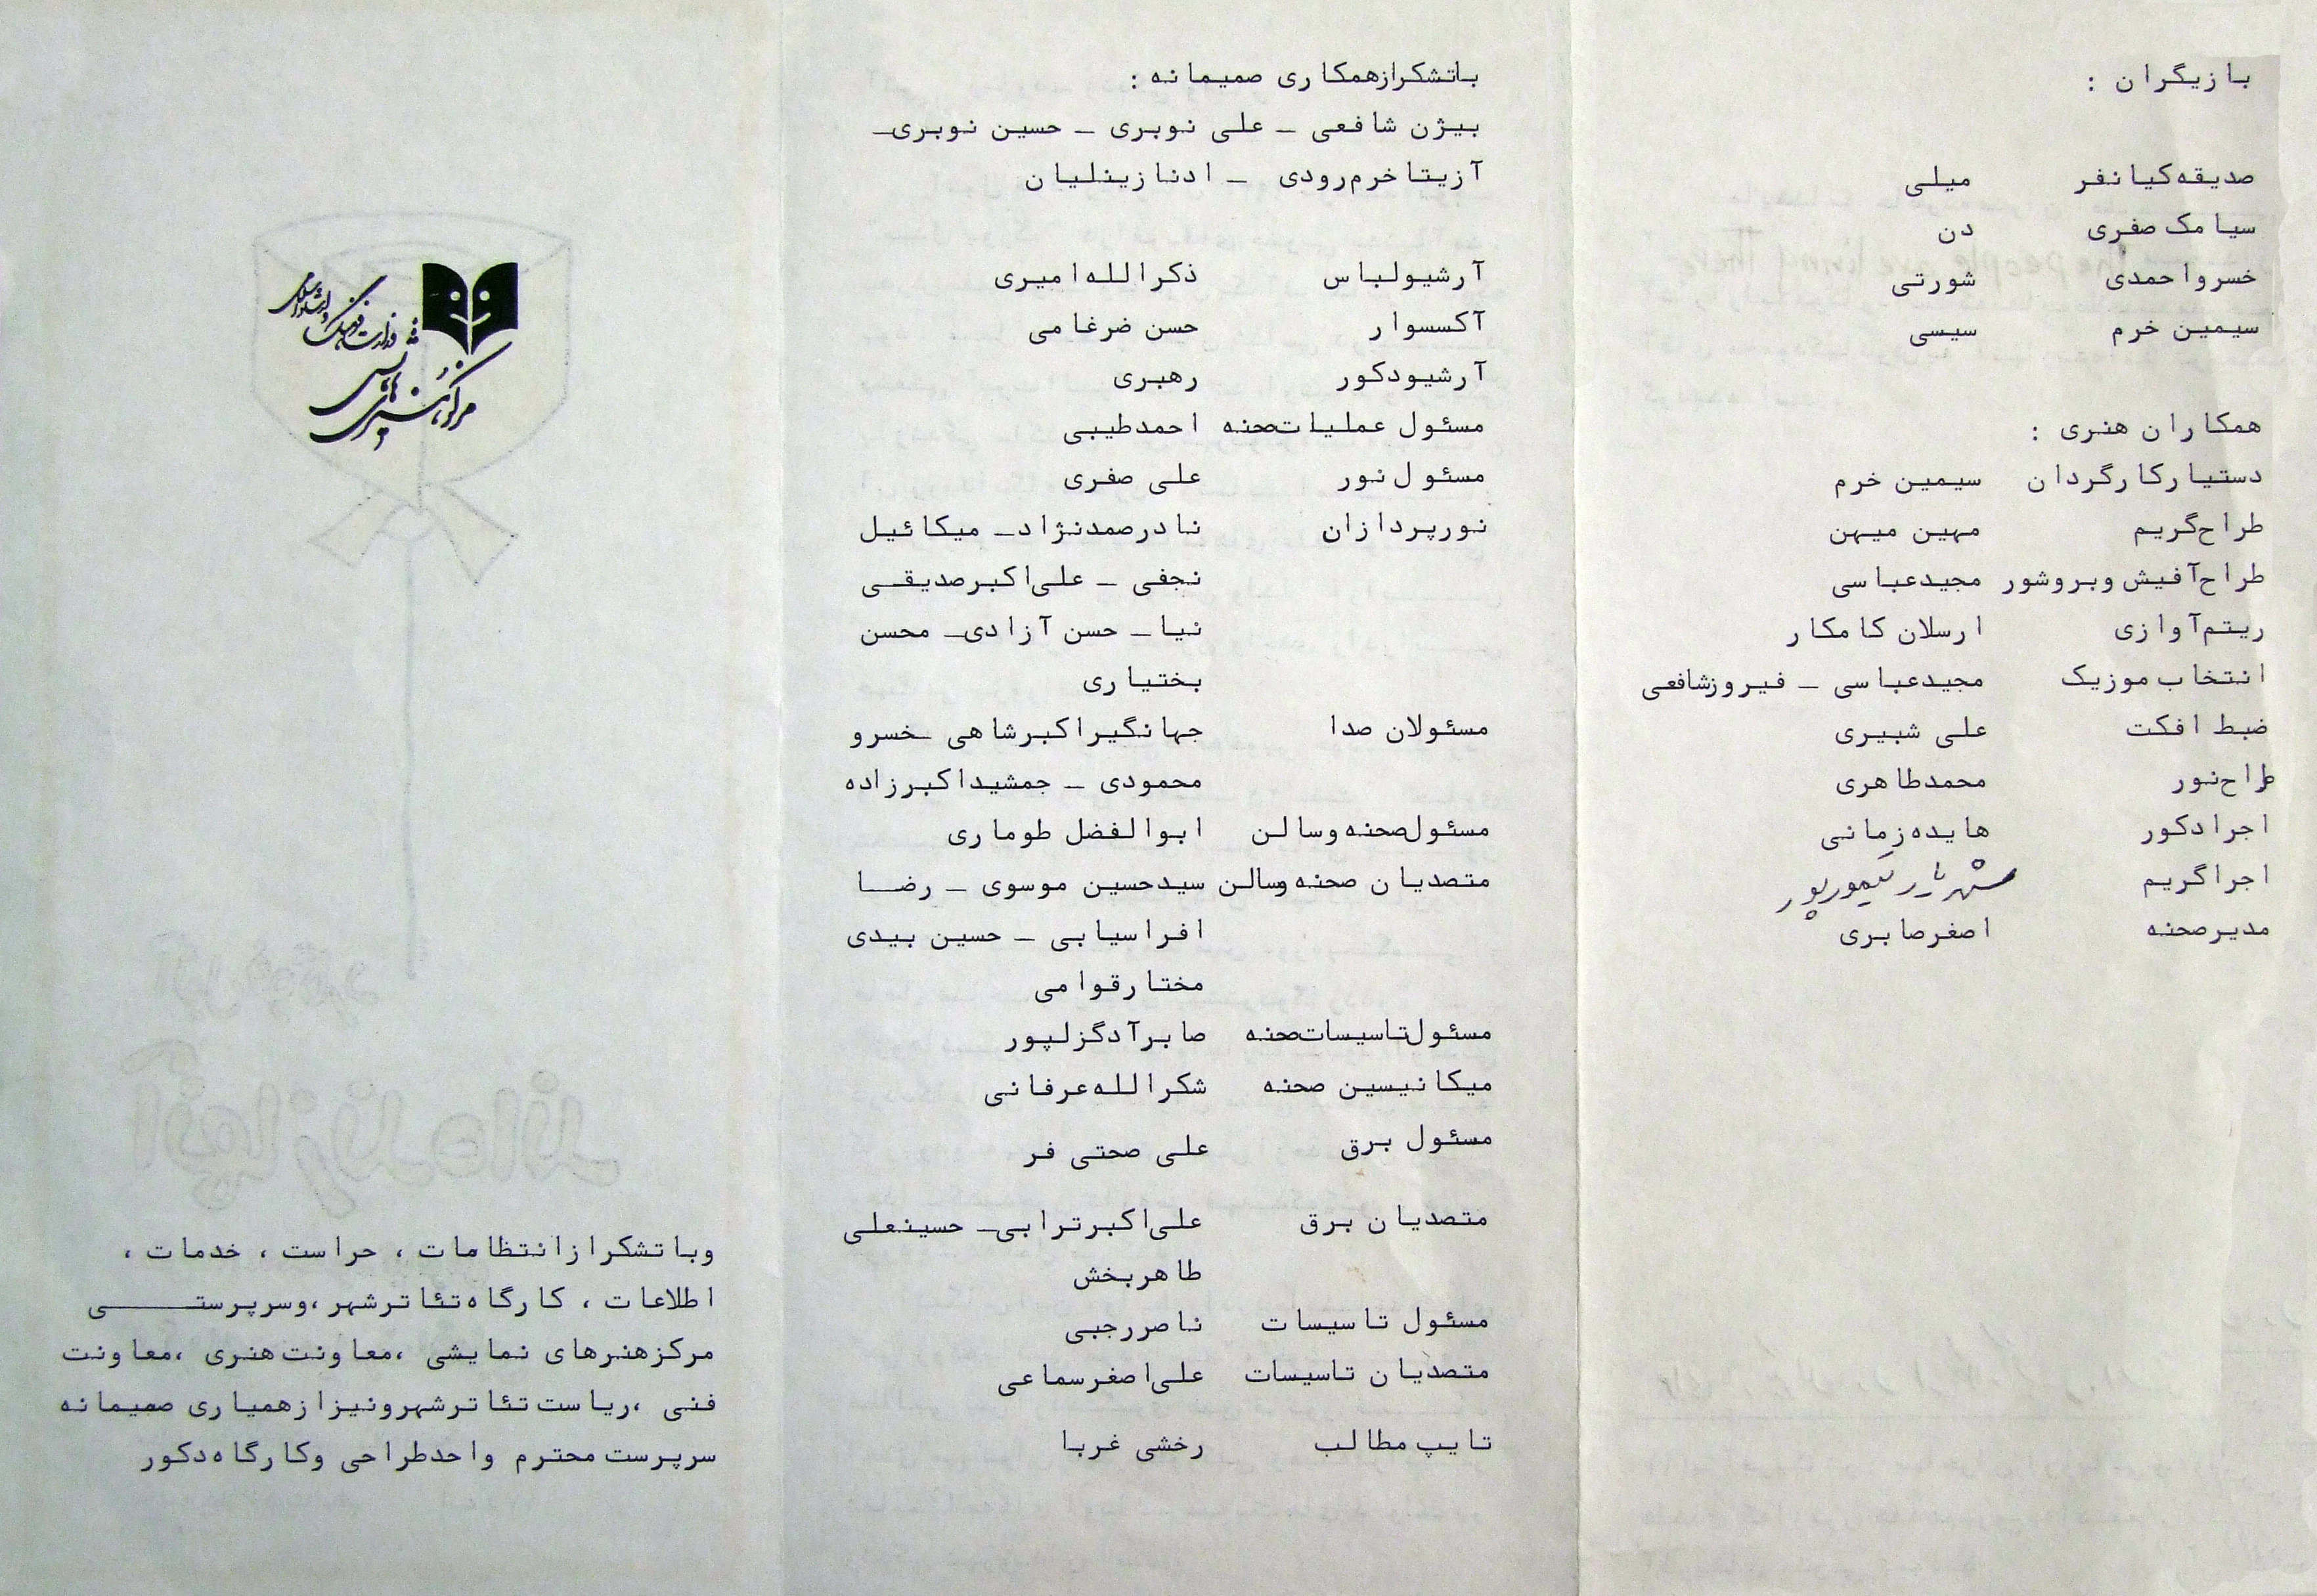 بازیگران :
صدیقه کیانفر میلی
سیامک صفری دن
خسرو احمدی شورتی
سیمین خرم سیسی
همکاران هنری :
دستیار کارگردان سیمین خرم
طراح گریم مهین میهن
طراح آفیش و بروشور مجید عباسی
ریتم آوازی ارسلان کامکار
انتخاب موزیک مجید عباسی – فیروز شافعی
ضبط افکت علی شبیری
طراح نور محمد طاهری
اجرا دکور هایده زمانی
اجرا گریم شهریار تیمورپور
مدیر صحنه اصغر صابری
با تشکر از همکاری صمیمانه :
بیژن شافعی – علی نوبری – حسین نوبری –
آزیتا خرم رودی – ادنا زینلیان
آرشیو لباس ذکرالله امیری
آکسسوار حسن ضرغامی
آرشیو دکور رهبری
مسئول عملیات صحنه احمد طیبی
مسئول نور علی صفری
نورپردازان نادر صمدنژاد – میکائیل
نجفی – علی اکبر صدیقی
نیا – حسن آزادی – محسن
بختیاری
مسئولان صدا جهانگیر اکبرشاهی – خسرو
محمودی – جمشید اکبرزاده
مسئول صحنه و سالن ابوالفضل طوماری
متصدیان صحنه و سالن سید حسین موسوی – رضا
افراسیابی – حسین بیدی
مختار قوامی
مسئول تاسیسات صحنه صابر آدگزلپور
میکانیسین صحنه شکرالله عرفانی
مسئول برق علی صحتی فر
متصدیان برق علی اکبر ترابی – حسینعلی
طاهربخش
مسئول تاسیسات ناصر رجبی
متصدیان تاسیسات علی اصغر سماعی
تایپ مطالب رخشی غربا
وزارت فرهنگ و ارشاد اسلامی
مرکز هنرهای نمایشی
و با تشکر از انتظامات ، حراست ، خدمات ،
اطلاعات ، کارگاه تئاتر شهر ، و سرپرستی
مرکز هنرهای نمایشی ، معاونت هنری ، معاونت
فنی ، ریاست تئاتر شهر و نیز از همیاری صمیمانه
سرپرست محترم واحد طراحی و کارگاه دکور